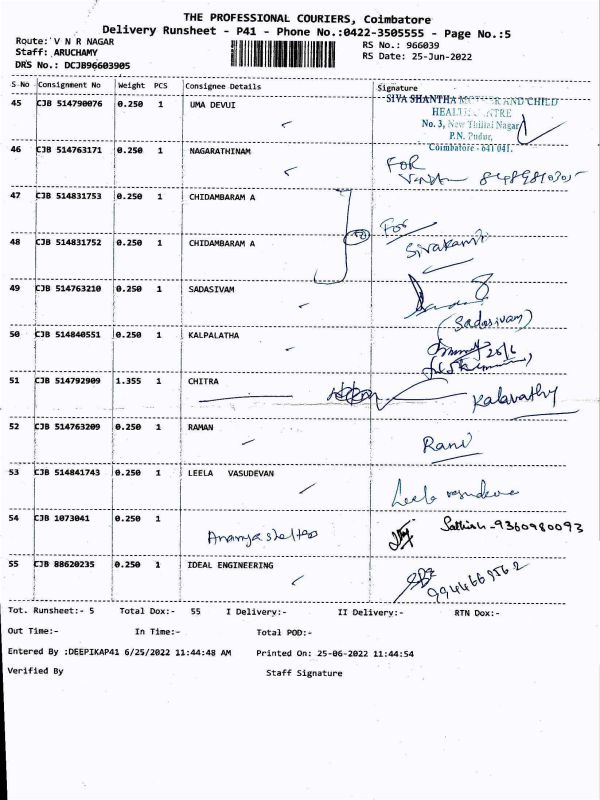 THE PROFESSIONAL COURIERS, Coimbatore
Delivery Runsheet - P41 - Phone No.:0422-3505555 - Page No.:5
Route: V N R NAGAR
RS No.: 966039
Staff: ARUCHAMY
RS Date: 25-Jun-2022
DRS No.: DCJB96603905
S No Consignment No Weight PCS Consignee Details Signature
45 CJB 514790076 0.250 1 UMA DEVUI
SIVA SHANTHA AND CHILD
HEALTH
No. 3, New Thillai Nagar
P.N. Pudur,
Coimbatore - 641 041.
46 CJB 514763171 0.250 1 NAGARATHINAM
FOR
47 CJB 514831753 0.250 1 CHIDAMBARAM A
For
48 CJB 514831752 0.250 1 CHIDAMBARAM A
Sivakami
49 CJB 514763210 0.250 1 SADASIVAM
(Sadasivam)
50 CJB 514840551 0.250 1 KALPALATHA
26/6
51 CJB 514792909 1.355 1 CHITRA
Kalavathy
52 CJB 514763209 0.250 1 RAMAN
Rani
53 CJB 514841743 0.250 1 LEELA VASUDEVAN
Leela vasudevan
54 CJB 1073041 0.250 1
Ananya shelters
Sathish - 9360980093
55 CJB 88620235 0.250 1 IDEAL ENGINEERING
9944669562
Tot. Runsheet:- 5 Total Dox:- 55 I Delivery:- II Delivery:- RTN Dox:-
Out Time:- In Time:- Total POD:-
Entered By :DEEPIKAP41 6/25/2022 11:44:48 AM Printed On: 25-06-2022 11:44:54
Verified By Staff Signature